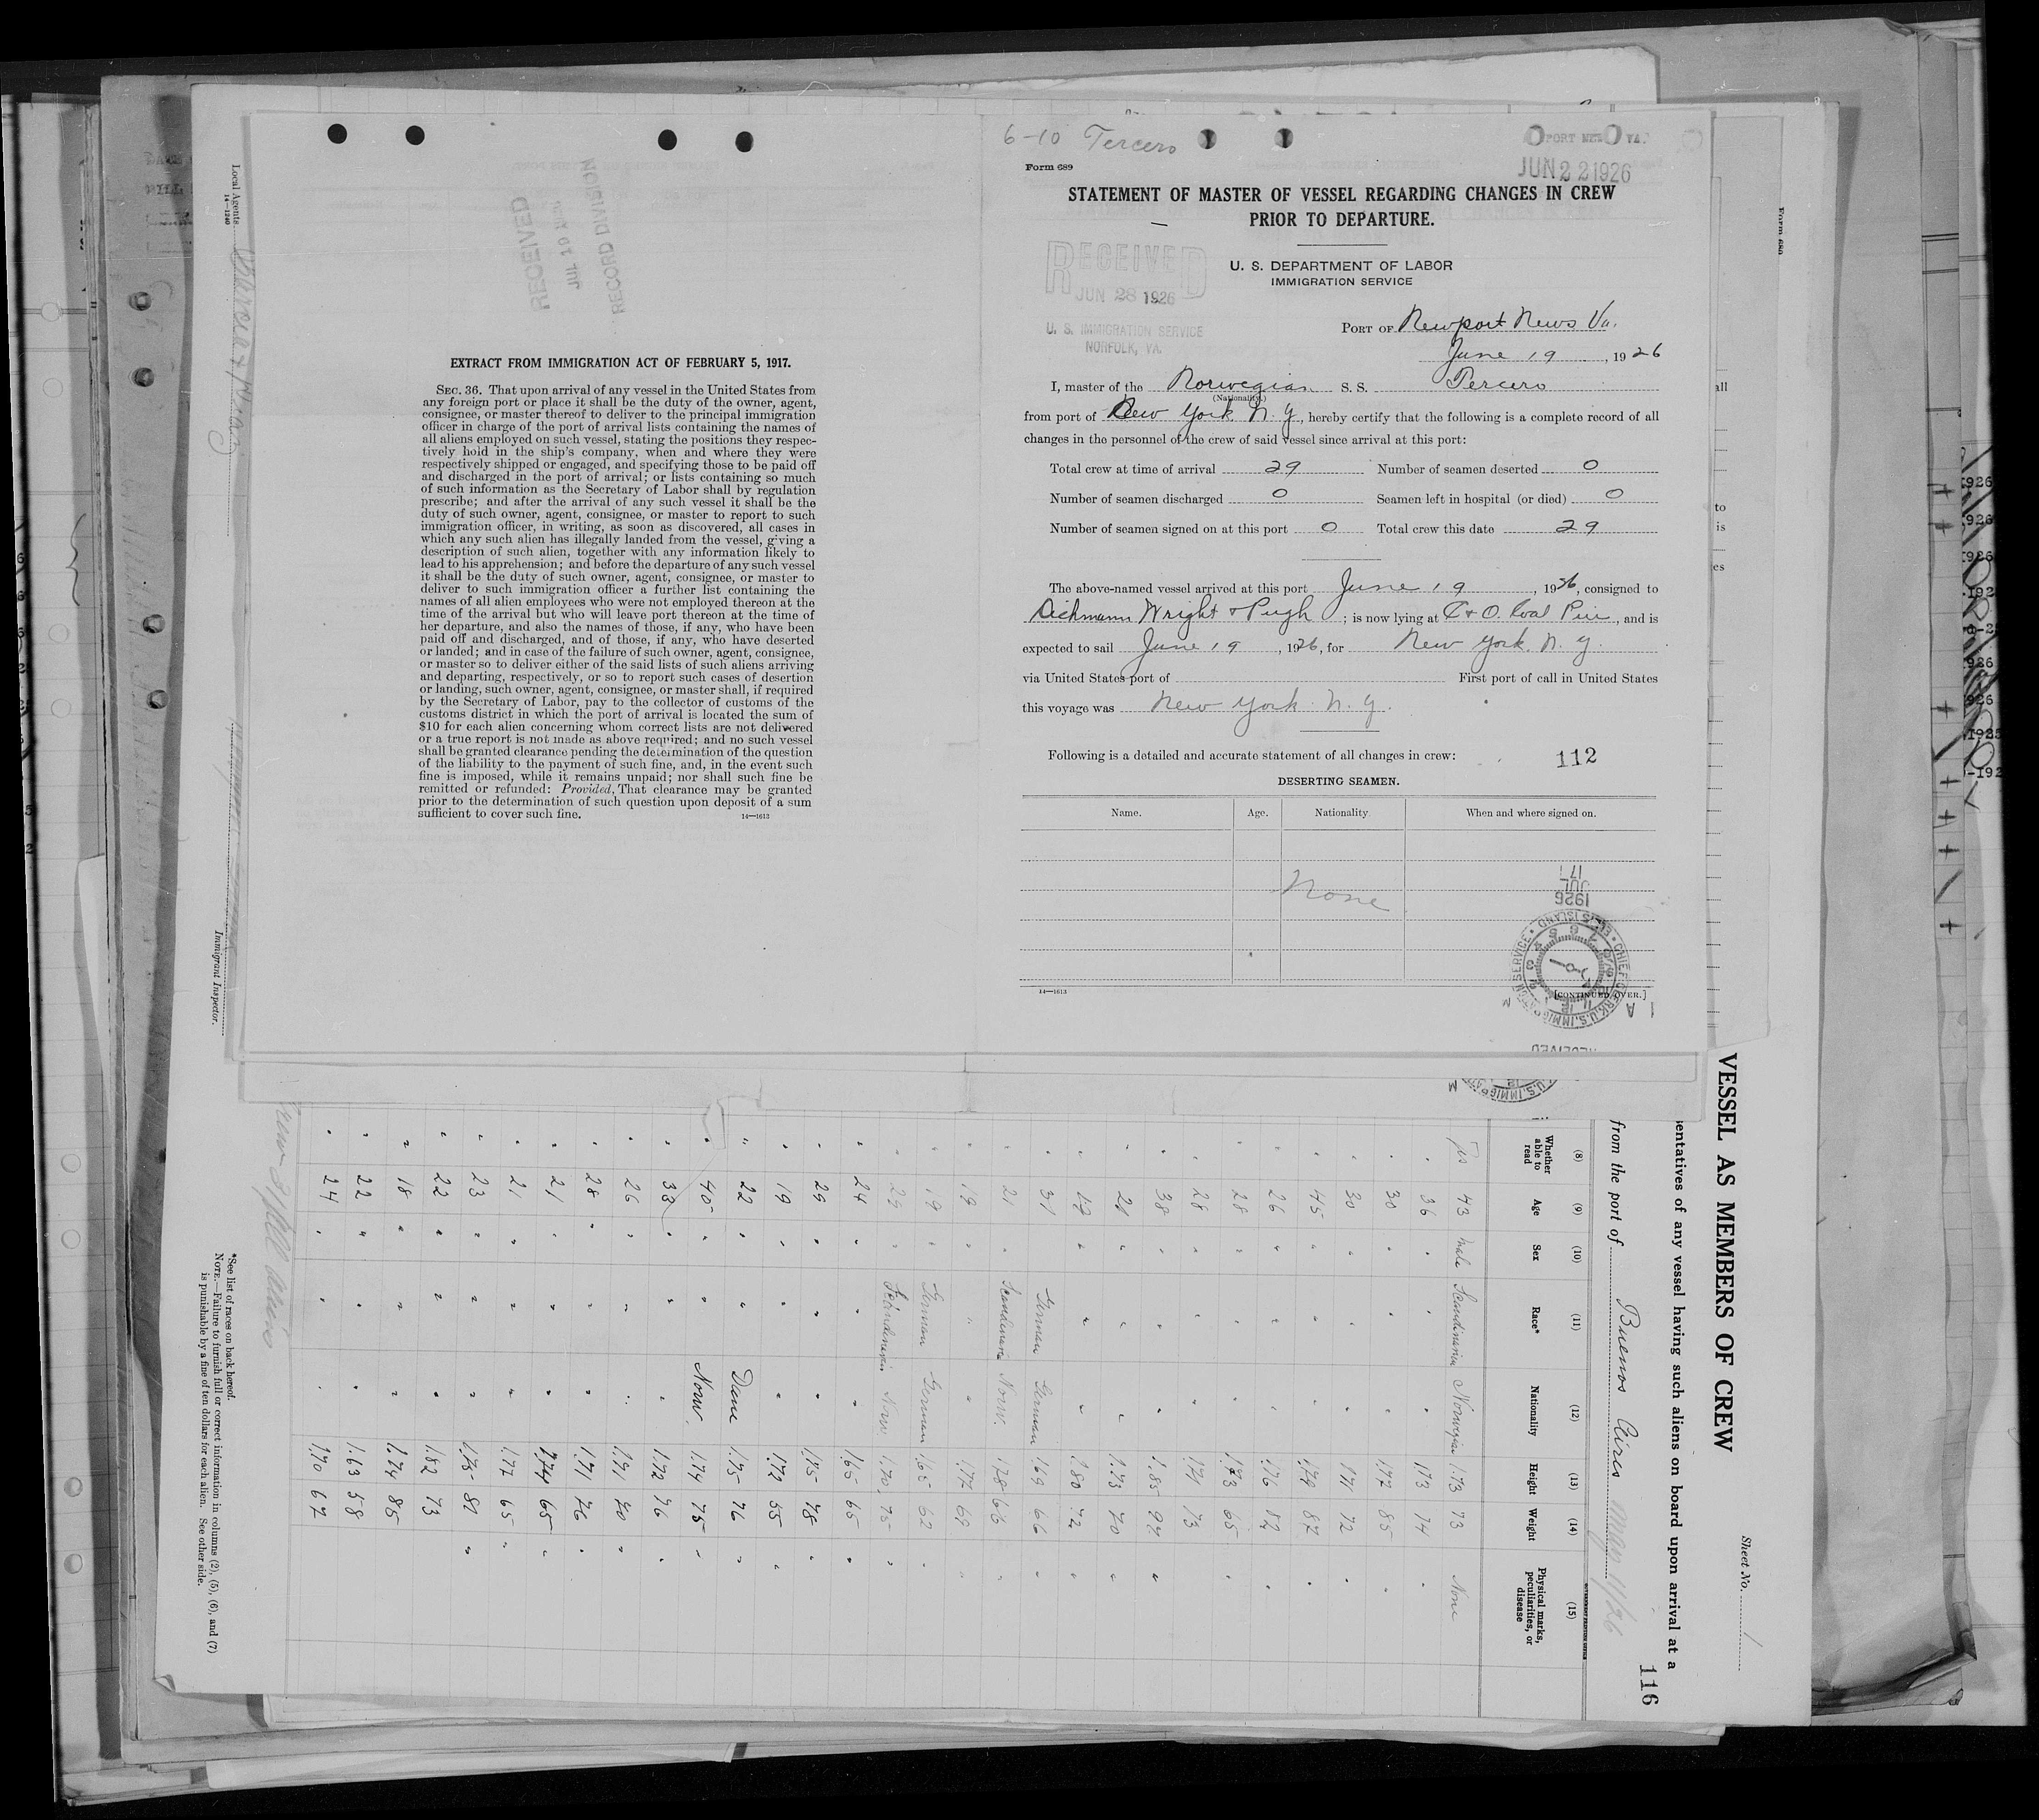 Local Agents
14—1240
Immigrant Inspector.
RECEIVED
JUL 19
RECORD DIVISION
EXTRACT FROM IMMIGRATION ACT OF FEBRUARY 5, 1917.
SEC. 36. That upon arrival of any vessel in the United States from
any foreign port or place it shall be the duty of the owner, agent,
consignee, or master thereof to deliver to the principal immigration
officer in charge of the port of arrival lists containing the names of
all aliens employed on such vessel, stating the positions they respec-
tively hold in the ship's company, when and where they were
respectively shipped or engaged, and specifying those to be paid off
and discharged in the port of arrival; or lists containing so much
of such information as the Secretary of Labor shall by regulation
prescribe; and after the arrival of any such vessel it shall be the
duty of such owner, agent, consignee, or master to report to such
immigration officer, in writing, as soon as discovered, all cases in
which any such alien has illegally landed from the vessel, giving a
description of such alien, together with any information likely to
lead to his apprehension; and before the departure of any such vessel
it shall be the duty of such owner, agent, consignee, or master to
deliver to such immigration officer a further list containing the
names of all alien employees who were not employed thereon at the
time of the arrival but who will leave port thereon at the time of
her departure, and also the names of those, if any, who have been
paid off and discharged, and of those, if any, who have deserted
or landed; and in case of the failure of such owner, agent, consignee,
or master so to deliver either of the said lists of such aliens arriving
and departing, respectively, or so to report such cases of desertion
or landing, such owner, agent, consignee, or master shall, if required
by the Secretary of Labor, pay to the collector of customs of the
customs district in which the port of arrival is located the sum of
$10 for each alien concerning whom correct lists are not delivered
or a true report is not made as above required; and no such vessel
shall be granted clearance pending the determination of the question
of the liability to the payment of such fine, and, in the event such
fine is imposed, while it remains unpaid; nor shall such fine be
remitted or refunded: Provided, That clearance may be granted
prior to the determination of such question upon deposit of a sum
sufficient to cover such fine.
14—1613
6-10 Tercero
PORT NEWS VA.
JUN 22 1926
Form 689
STATEMENT OF MASTER OF VESSEL REGARDING CHANGES IN CREW
PRIOR TO DEPARTURE.
RECEIVED
JUN 28 1926
U. S. IMMIGRATION SERVICE
NORFOLK, VA.
U. S. DEPARTMENT OF LABOR
IMMIGRATION SERVICE
PORT OF Newport News Va.
June 19, 1926
I, master of the Norwegian S. S. Tercero
(Nationality.)
from port of New York N. Y, hereby certify that the following is a complete record of all
changes in the personnel of the crew of said vessel since arrival at this port:
Total crew at time of arrival 29 Number of seamen deserted 0
Number of seamen discharged 0 Seamen left in hospital (or died) 0
Number of seamen signed on at this port 0 Total crew this date 29
The above-named vessel arrived at this port June 19, 1926, consigned to
Dichmann Wright & Pugh; is now lying at C & O. Coal Pier, and is
expected to sail June 19, 1926, for New York. N. Y.
via United States port of First port of call in United States
this voyage was New York N. Y.
Following is a detailed and accurate statement of all changes in crew: 112
DESERTING SEAMEN.
Name. Age. Nationality When and where signed on.
None
14—1613
[CONTINUED OVER.]
1926
JUL
17
CHIEF CLERK, U.S. IMMIGRATION SERVICE ELLIS ISLAND
Form 680
Sheet No. 1
VESSEL AS MEMBERS OF CREW
entatives of any vessel having such aliens on board upon arrival at a
116
from the port of Buenos Aires May 1/26
(8) (9) (10) (11) (12) (13) (14) (15)
Whether able to read Age Sex Race* Nationality Height Weight Physical marks, peculiarities, or disease
Yes 43 male Scandinavian Norwegian 1.73 73 None
" 36 " " " 173 74 "
" 30 " " " 1.72 85 "
" 30 " " " 171 72 "
" 45 " " " 1.79 87 "
" 26 " " " 1.76 82 "
" 28 " " " 1.73 65 "
" 28 " " " 171 73
" 38 " " " 1.85 92 "
" " " " 1.73 70 "
" 19 " " " 1.80 72 "
" 31 German German 1.69 66 "
" 21 " Scandinavian Norw. 178 66 "
" 19 " " " 1.72 69 "
" 19 " German German 1.65 62 "
" 29 " Scandinavian Norw 1.70 75 "
" 24 " " " 1.65 65 "
" 29 " " " 1.75 78 "
" 19 " " " 1.72 55 "
" 22 " " Dane 1.75 76 "
" 40 " " Norw. 1.74 75 "
" 33 " " " 1.72 76 "
" 26 " " " 1.71 70 "
" 28 " " " 1.71 76 "
" 21 " " " 1.74 65 "
" 21 " " " 1.77 65 "
" 23 " " " 1.75 80 "
" 22 " " " 1.82 73
" 18 " " " 1.74 85
" 22 " " " 1.63 58
" 24 " " " 1.70 67
*See list of races on back hereof.
NOTE.—Failure to furnish full or correct information in columns (2), (5), (6), and (7)
is punishable by a fine of ten dollars for each alien. See other side.